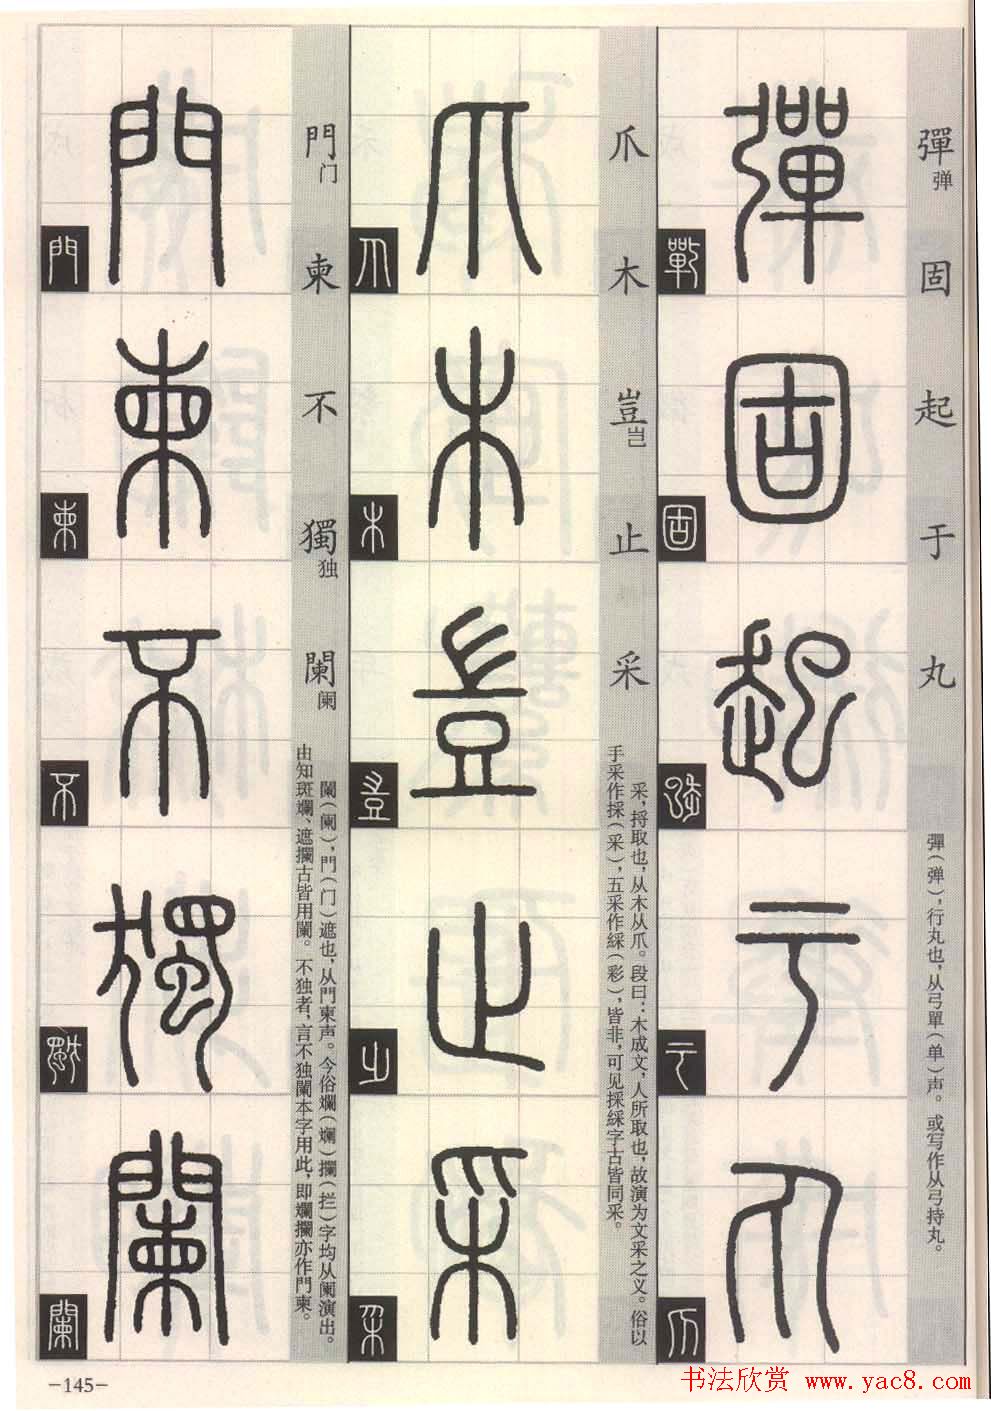 彈弹 固 起 于 丸
彈（弹），行丸也，从弓單（单）声。或写作从弓持丸。
彈
固
起
于
丸
爪 木 豈岂 止 采
采，捋取也，从木从爪。段曰：木成文，人所取也，故演为文采之义。俗以
手采作採（采），五采作綵（彩），皆非，可见採綵字古皆同采。
爪
木
豈
止
采
門门 柬 不 獨独 闌阑
闌（阑），門（门）遮也，从門柬声。今俗斕（斓）攔（拦）字均从阑演出。
由知斑斕、遮攔古皆用闌。不独者，言不独闌本字用此，即斕攔亦作門柬。
門
柬
不
獨
闌
-145-
书法欣赏 www.yac8.com